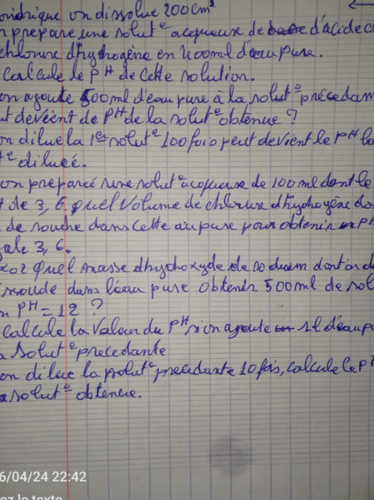 oridrique on dissolue 200cm³
n prepare une solut° acqueuse de d'acide c
chlorure d'hydrogène en 400ml d'eau pure.
calcule le PH de cette solution.
on ajoute 500ml d'eau pure à la solut° precedan
ut devient de PH de la solut° obtenue ?
on dilue la 1e solut° 100 fois peut devient le PH la
t° diluée.
on preparé une solut° acqueuse de 100ml dont le
t de 3,6 quel volume de chlorure d'hydrogène do
de soude dans cette au pure pour obtenir PH
gale 3,6.
xo2 Quel masse d'hydroxyde de soduim dont on d
issoude dans l'eau pure obtenir 500ml de sol
n PH = 12 ?
calcule la Valeur du PH, si on ajoute 1l d'eau p
a solut° precedante
on dilue la solut° precedante 10 fois, calcule le P
a solut° obtenue.
6/04/24 22:42
ez le texte